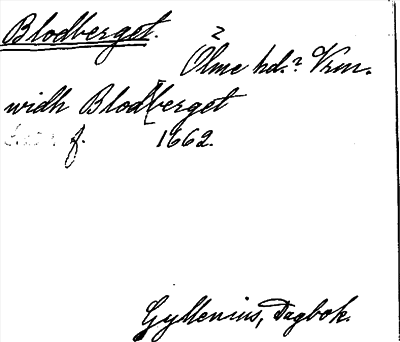 Blodberget.
Ölme hd.? Vrm.
widh Blodberget
f. 1662.
Gyllenius, Dagbok.